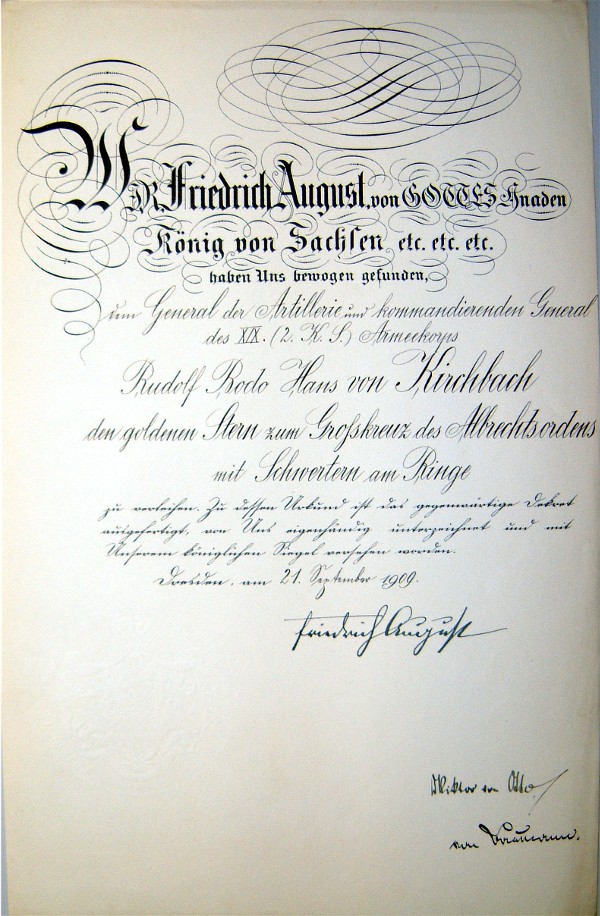 WIR, Friedrich August, von GOTTES Gnaden
König von Sachsen etc. etc. etc.
haben Uns bewogen gefunden,
dem General der Artillerie und kommandierenden General
des XIX. (2. K. S.) Armeekorps
Rudolf Bodo Hans von Kirchbach
den goldenen Stern zum Großkreuz des Albrechtsordens
mit Schwertern am Ringe
zu verleihen. Zu dessen Urkund ist das gegenwärtige Dekret
ausgefertigt, von Uns eigenhändig unterzeichnet und mit
Unserem königlichen Siegel versehen worden.
Dresden, am 21. September 1909.
Friedrich August
Viktor von Otto
von Baumann.